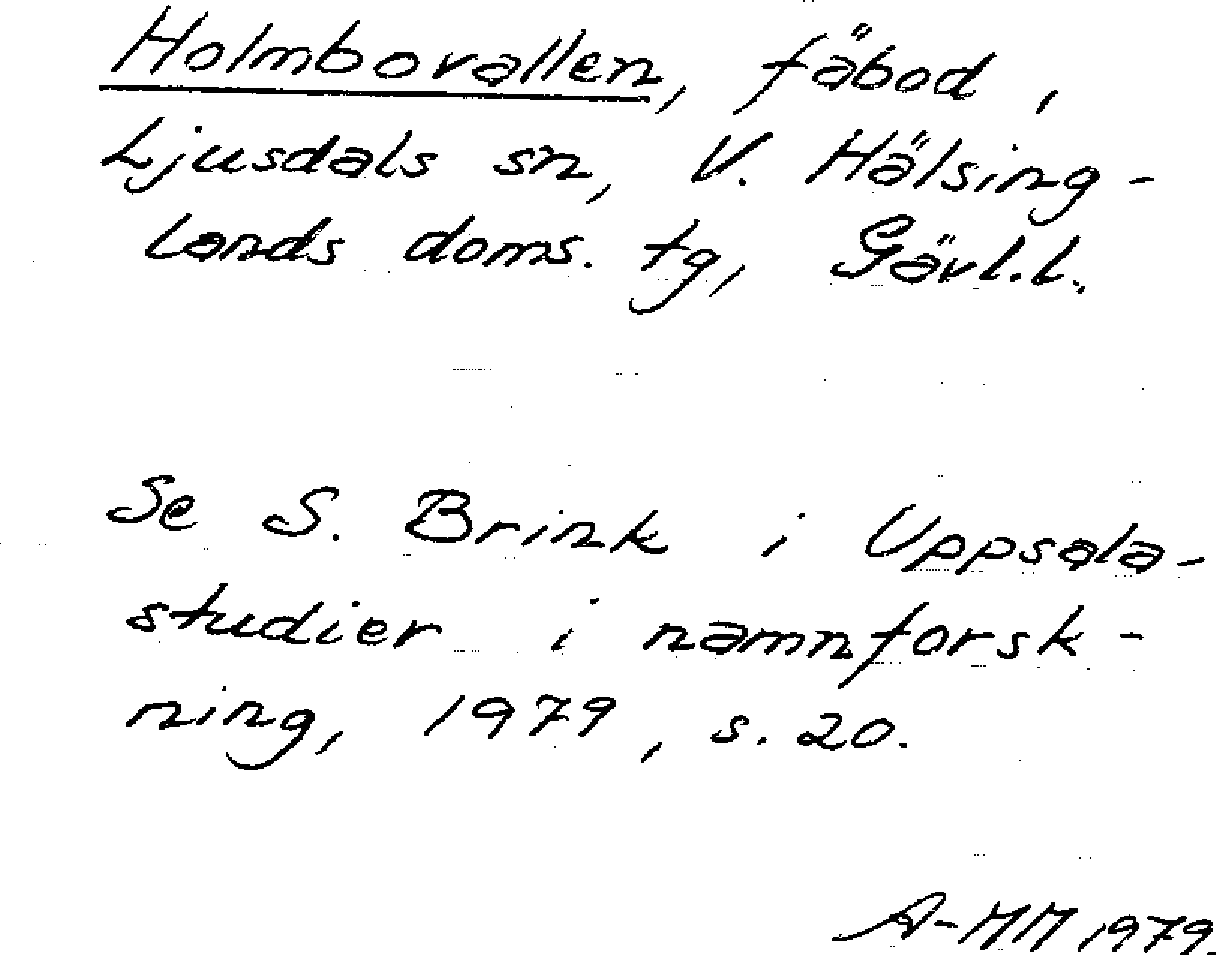 Holmbovallen, fäbod,
Ljusdals sn, V. Hälsing-
lands doms. tg, Gävl.l.
Se S. Brink i Uppsala-
studier i namnforsk-
ning, 1979, s. 20.
A-MM 1979.